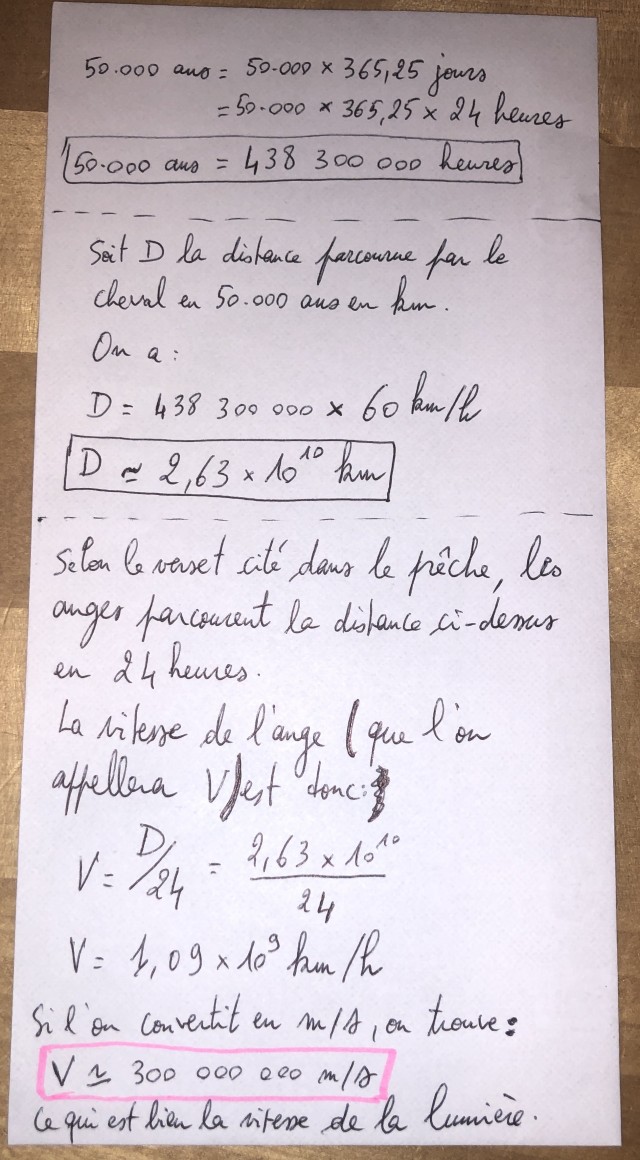 50.000 ans = 50.000 × 365,25 jours
= 50.000 × 365,25 × 24 heures
50.000 ans = 438 300 000 heures
Soit D la distance parcourue par le
cheval en 50.000 ans en km.
On a :
D = 438 300 000 × 60 km/h
D ≃ 2,63 × 10¹⁰ km
Selon le verset cité dans le prêche, les
anges parcourent la distance ci-dessus
en 24 heures.
La vitesse de l'ange (que l'on
appellera V) est donc :
V = D/24 = 2,63 × 10¹⁰ / 24
V = 1,09 × 10⁹ km/h
Si l'on convertit en m/s, on trouve :
V ≃ 300 000 000 m/s
Ce qui est bien la vitesse de la lumière.